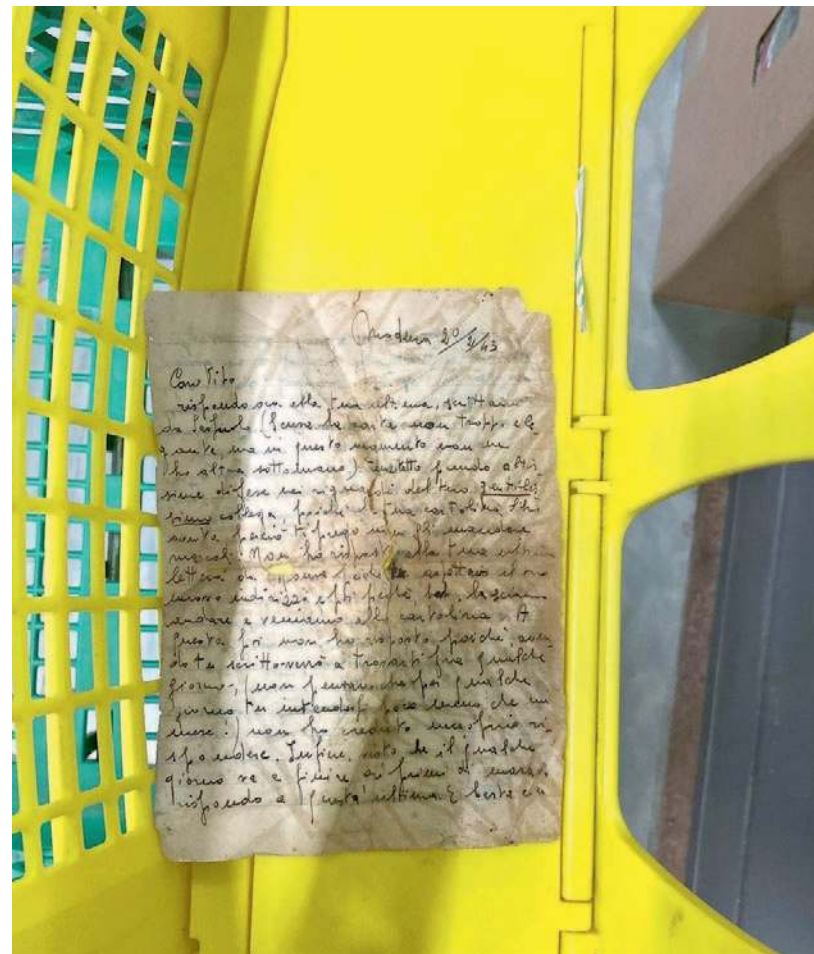 Modena 20/2/43
Caro Tito
rispondo ora alla tua ultima, scritta
da Sassuolo (Scusa la carta non troppo ele
gante, ma in questo momento non ne
ho altra sottomano).
difese nei riguardi del tuo gentilis
simo collega poiché la tua cartolina
perciò ti prego
Non ho risposto alla tua ultima
lettera da aspettavo il
nuovo indirizzo e poi perché, boh, lasciamo
andare e veniamo alla cartolina. A
questa poi non ho risposto poiché, aven
do tu scritto verrò a trovarti fra qualche
giorno, (non pensavo che per qualche
giorno tu intendessi poco meno che un
mese!) non ho creduto necessario ri
spondere. Infine, visto che il qualche
giorno va a finire ai primi di marzo,
rispondo a quest'ultima. E basta con